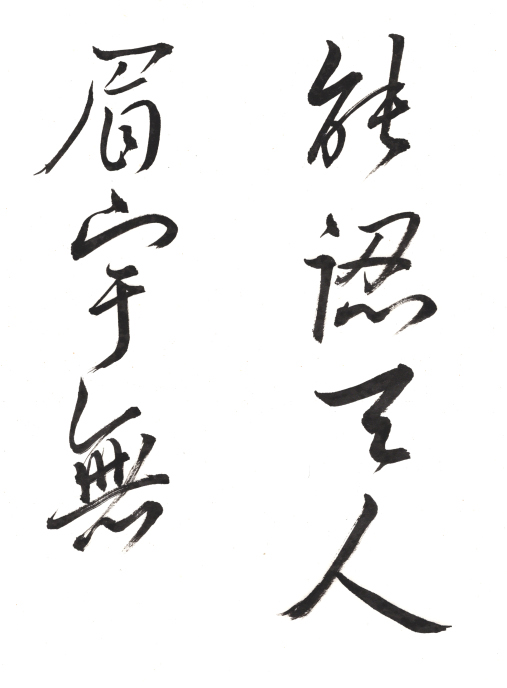 能認天人
眉宇無